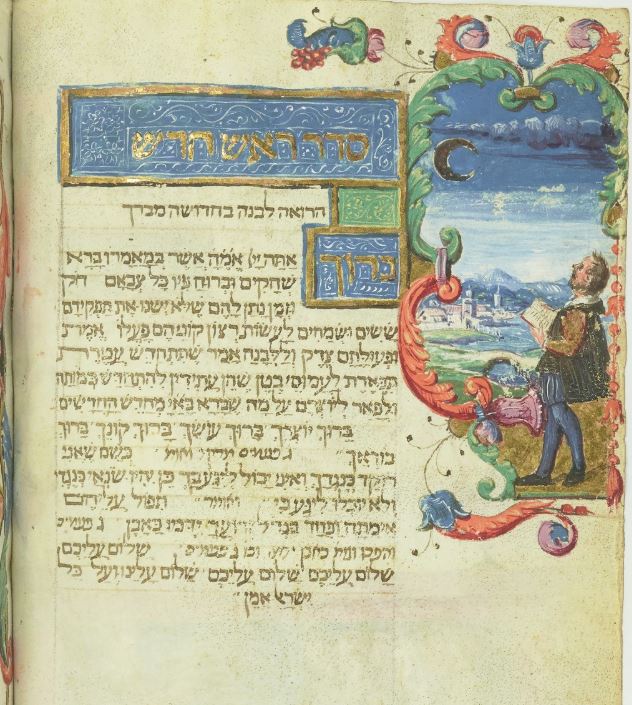 סדר ראש חדש
הרואה לבנה בחדושה מברך
ברוך
אתה יי אמה אשר במאמרו ברא
שחקים וברוח פיו כל צבאם חק
וזמן נתן להם שלא ישנו את תפקידם
ששים ושמחים לעשות רצון קוניהם פעלי אמרת
ופעולתם צדק וללבנה אמר שתתחדש עטרת
תפארת לעמוסי בטן שהן עתידין להתחדש כמותה
ולפאר ליוצרם על מה שברא באי מחדש החדשים
ברוך יוצרך ברוך עושך ברוך קונך ברוך
בוראך ג פעמים כשם שאני
רוקד כנגדך ואיני יכול ליגע בך כן יהיו שונאי כנגדי
ולא יוכלו ליגע בי ויאמר תפול עליהם
אימתה ופחד בגדל זרועך ידמו כאבן ג פעמים
וכן ג פעמים שלום עליכם
שלום עליכם שלום עליכם שלום עלינו ועל כל
ישראל אמן